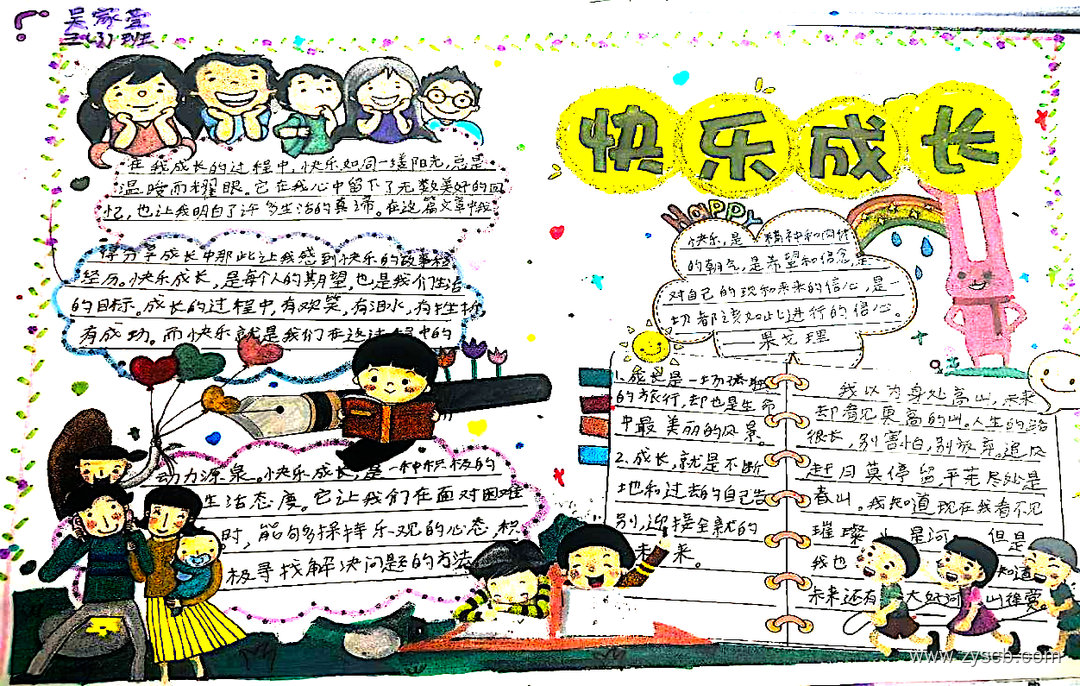 吴家萱
三(3)班
在我成长的过程中,快乐如同一缕阳光,总是
温暖而耀眼。它在我心中留下了无数美好的回
忆,也让我明白了许多生活的真谛。在这篇文章中我
得分享成长中那些让我感到快乐的故事和
经历。快乐成长,是每个人的期望也是我们生活
的目标。成长的过程中,有欢笑,有泪水,有挫折
有成功。而快乐就是我们在这过程中的
动力源泉。快乐成长,是一种积极的
生活态度。它让我们在面对困难
时,能够保持乐观的心态,积
极寻找解决问题的方法
快乐成长
HAPPY
快乐,是精神和肉体
的朝气,是希望和信念,是
对自己的现和未来的信心,是一
切都该如此进行的信心。
——果戈理
1.成长是一场孤独
的旅行,却也是生命
中最美丽的风景。
2.成长,就是不断
地和过去的自己告
别,迎接全新的
未来。
我以为身处高山,未来
却看见更高的山。人生的路
很长,别害怕,别放弃。追风
赶月莫停留,平芜尽处是
春山。我知道现在我看不见
璀璨 星河 但是
我也 知道
未来还有 大好河 山待赏。
www.zyscb.com